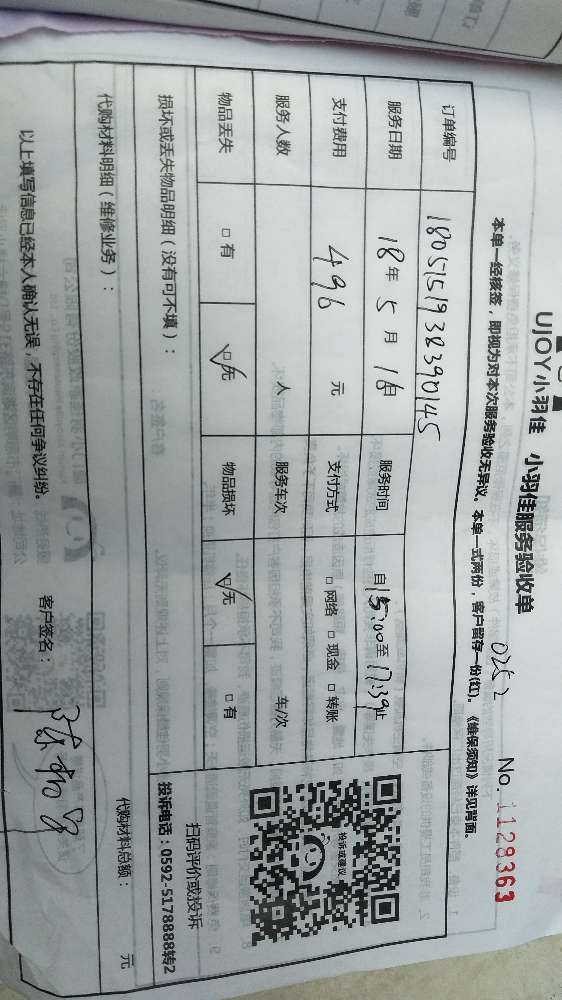 UJOY小羽佳 小羽佳服务验收单
0252 No. 1129363
本单一经核签，即视为对本次服务验收无异议。本单一式两份，客户留存一份(红)。《维保须知》详见背面。
订单编号 180515193839 0145
服务日期 18年 5月 16日 服务时间 自15:00至17:39止
支付费用 496 元 支付方式 □网络 □现金 □转账
服务人数 人 服务车次 车/次
物品丢失 □有 ☑无 物品损坏 ☑无 □有
投诉或建议
扫码评价或投诉
投诉电话：0592-5178888转2
损坏或丢失物品明细（没有可不填）：
代购材料明细（维修业务）：
代购材料总额： 元
以上填写信息已经本人确认无误，不存在任何争议纠纷。 客户签名：